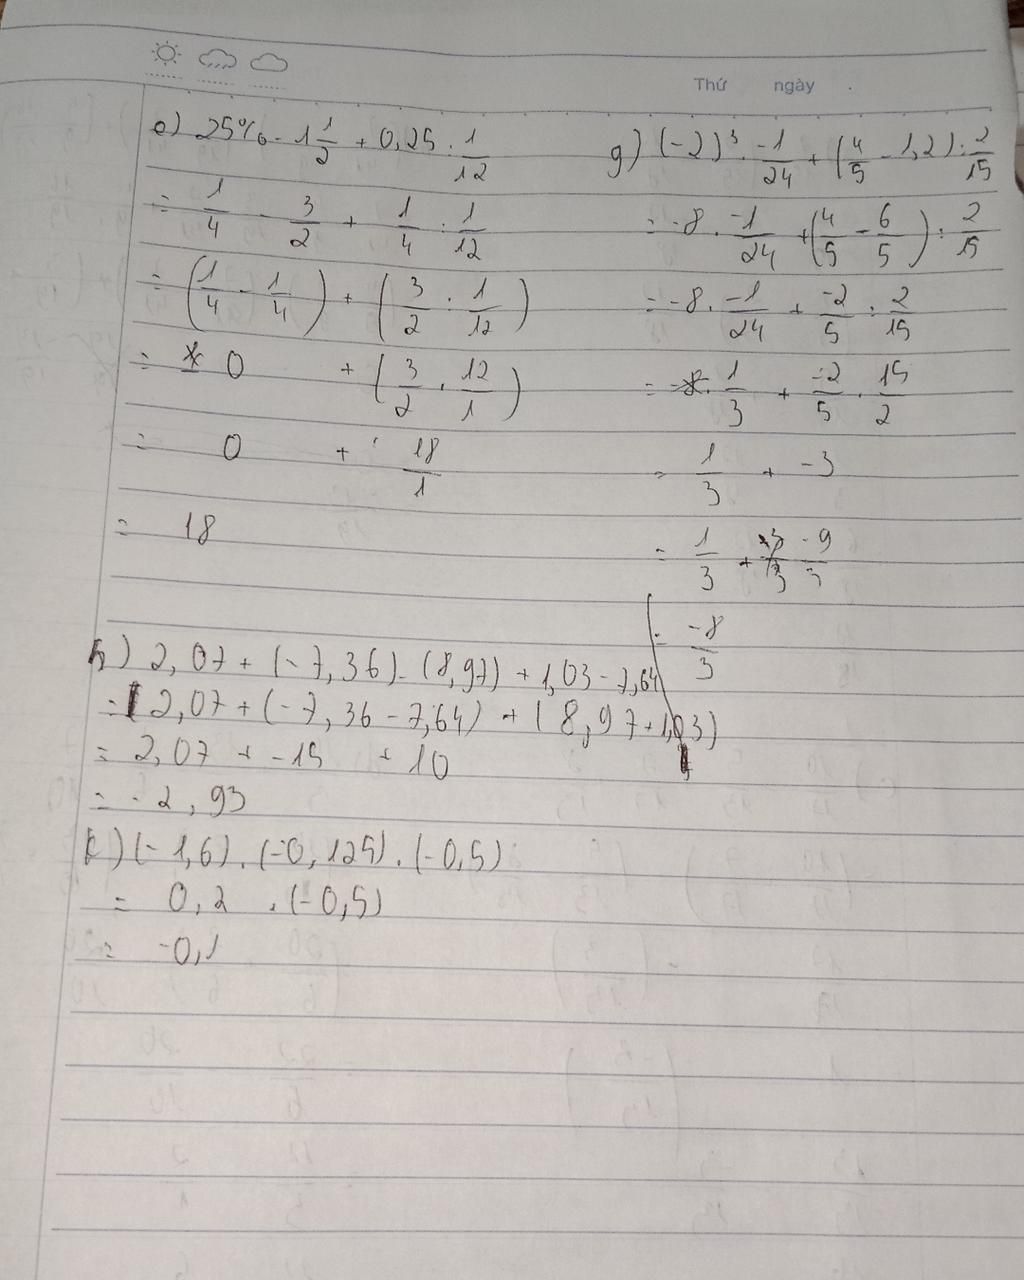 Thứ ngày
e) 25% - 1 1/2 + 0,25 : 1/12
= 1/4 - 3/2 + 1/4 : 1/12
= (1/4 - 1/4) + (3/2 : 1/12)
= 0 + (3/2 . 12/1)
= 0 + 18/1
= 18
g) (-2)³ . -1/24 + (4/5 - 1,2) : 2/15
= -8 . -1/24 + (4/5 - 6/5) : 2/15
= -8 . -1/24 + -2/5 : 2/15
= 1/3 + -2/5 . 15/2
= 1/3 + -3
= 1/3 + -9/3
= -8/3
h) 2,07 + (-7,36) - (8,97) + 1,03 - 7,64
= 2,07 + (-7,36 - 7,64) + (8,97 + 1,03)
= 2,07 + -15 + 10
= -2,93
k) (-1,6) . (-0,125) . (-0,5)
= 0,2 . (-0,5)
= -0,1